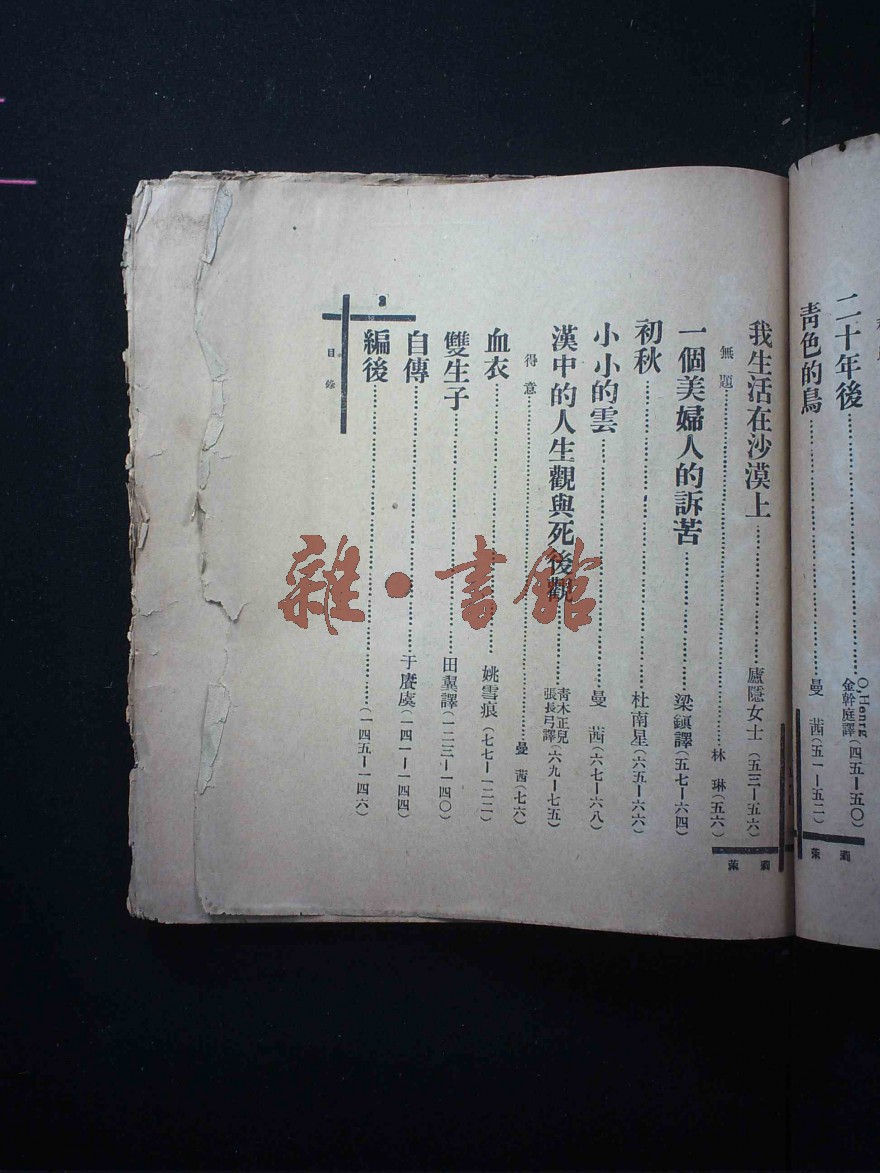 二十年後……O,Henrz 金幹庭譯(四五—五〇)
青色的鳥……曼 茜(五一—五二)
我生活在沙漠上……廬隱女士(五三—五六)
無題……林 琳(五六)
一個美婦人的訴苦……梁鎮譯(五七—六四)
初秋……杜南星(六五—六六)
小小的雲……曼 茜(六七—六八)
漢中的人生觀與死後觀……青木正兒 張長弓譯(六九—七五)
得意……曼 茜(七六)
血衣……姚雪痕(七七—一二二)
雙生子……田巽譯(一二三—一四〇)
自傳……于賡虞(一四一—一四四)
編後……(一四五—一四六)
2
目錄
雜·書館